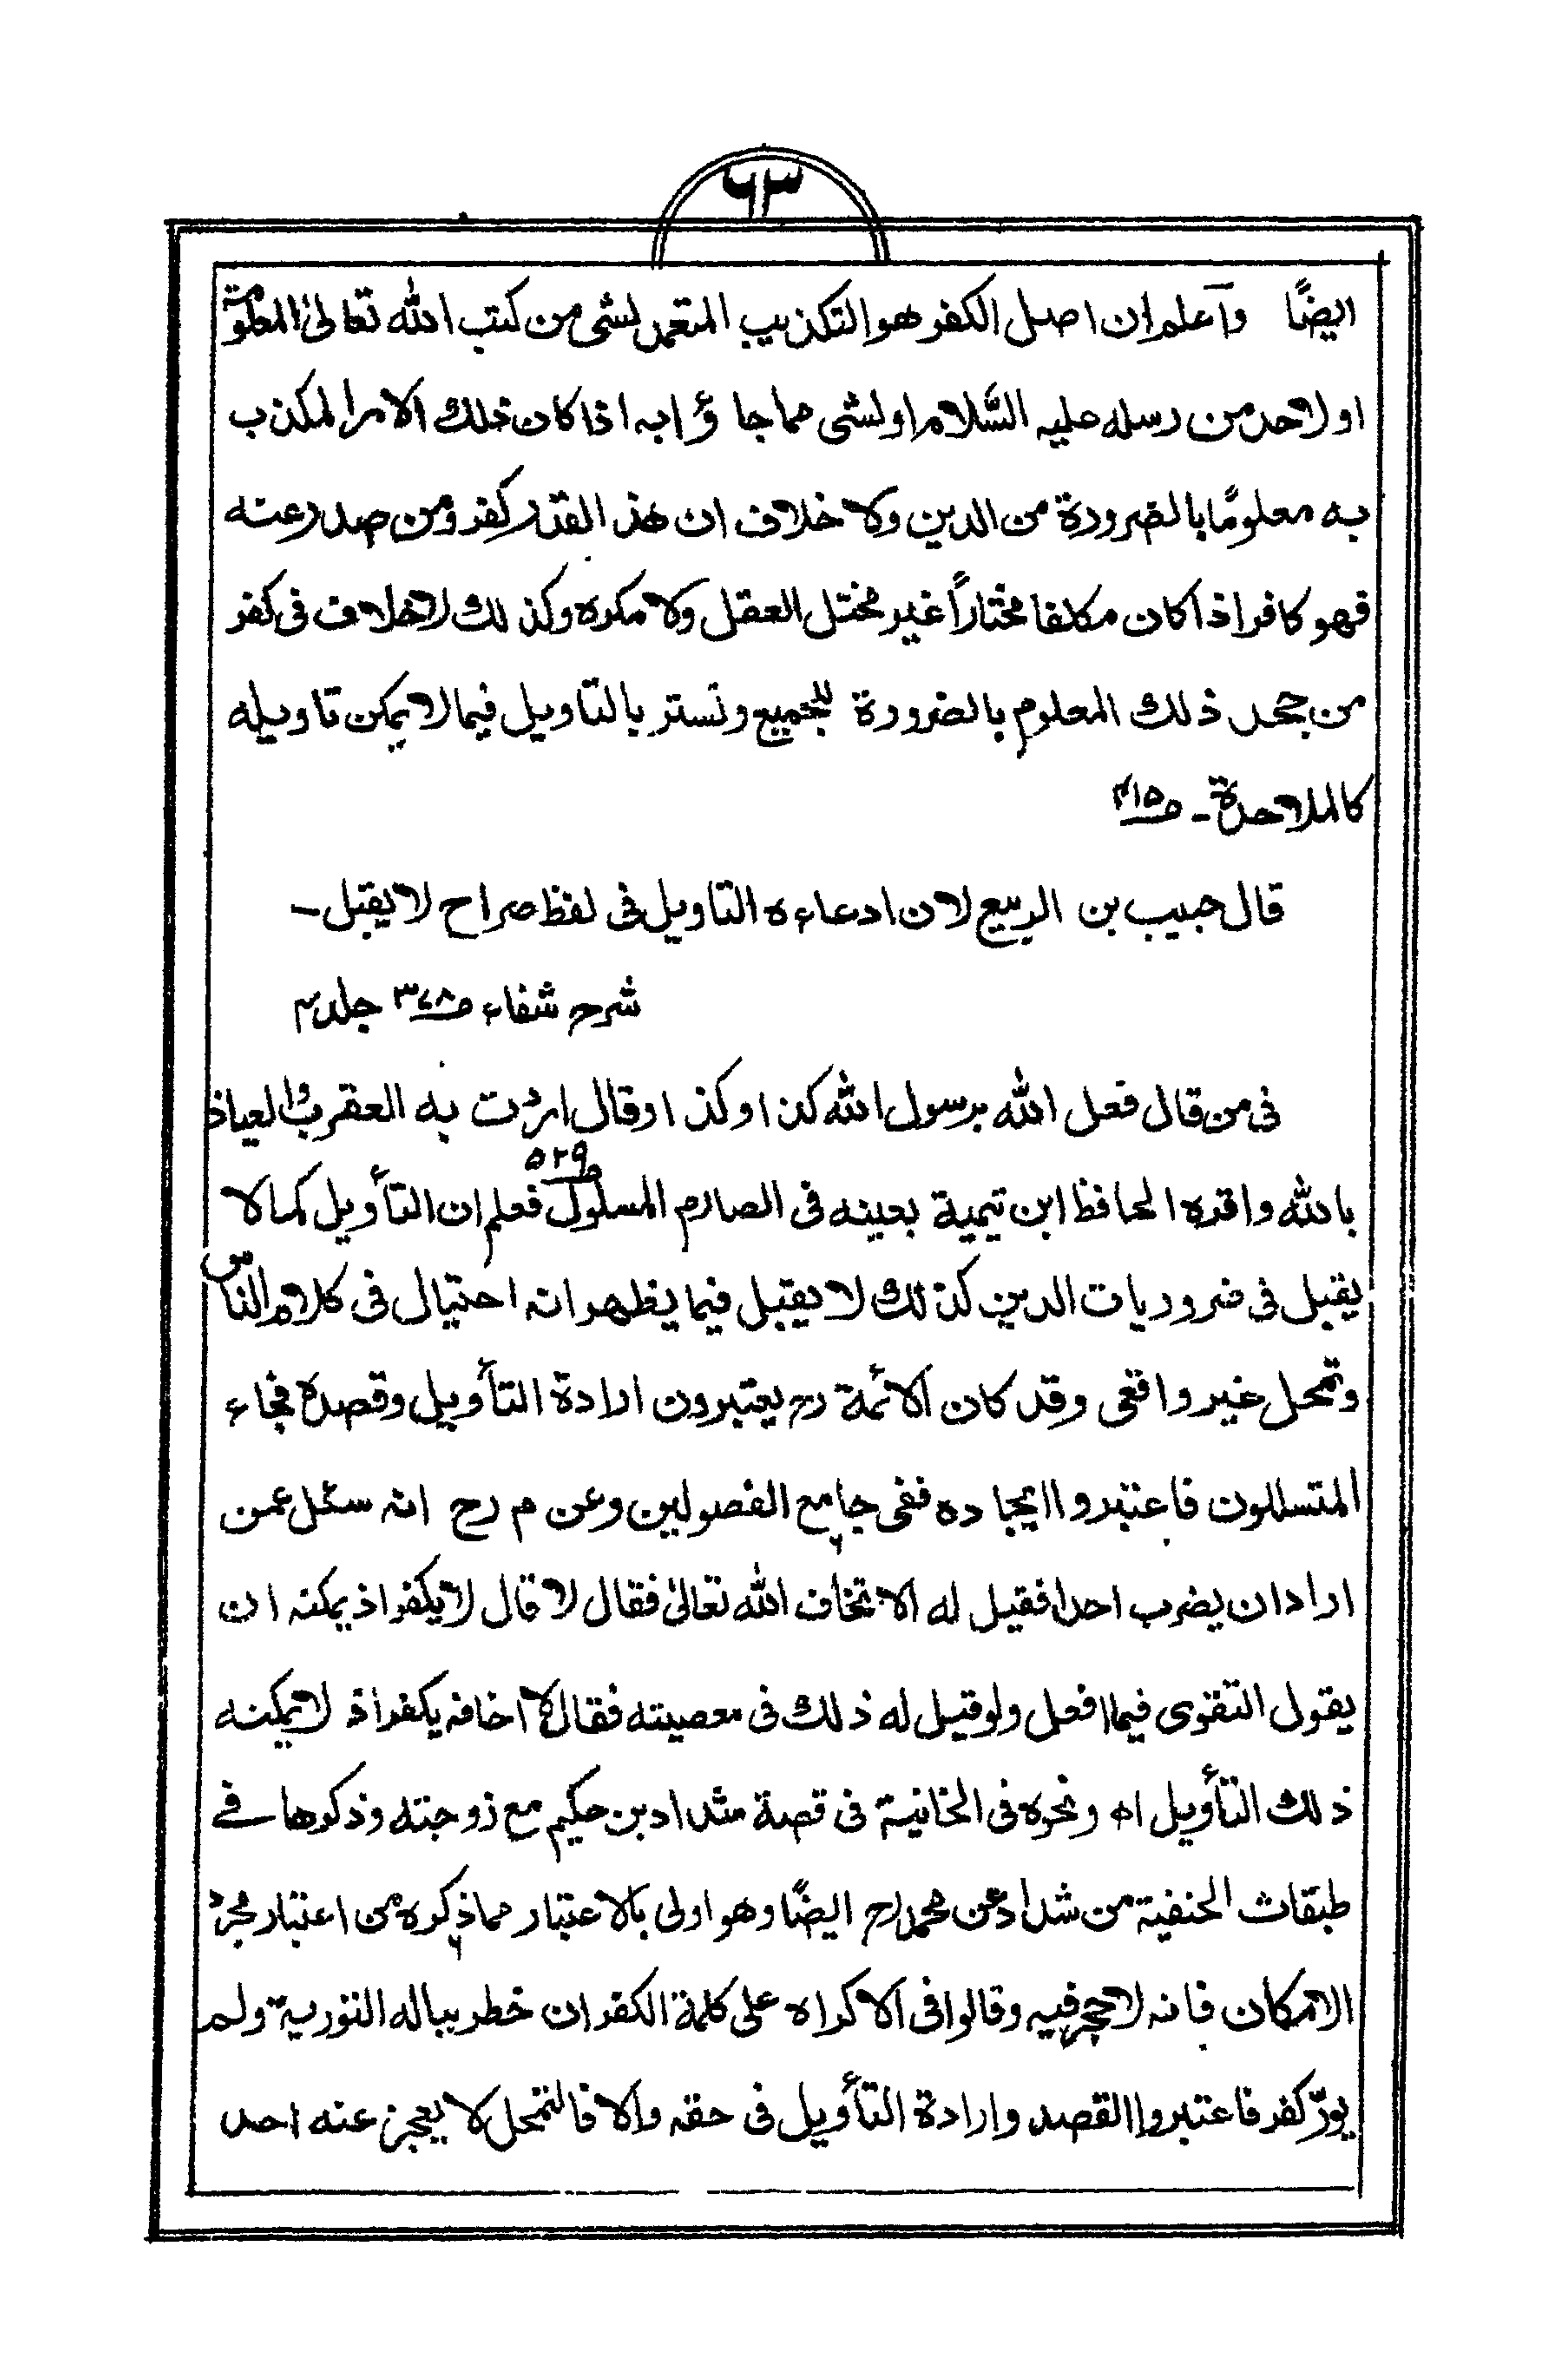 ٦٣
ايضًا واعلم ان اصل الكفر هو التكذيب المتعمد لشى من كتب الله تعالىٰ المعلومة
او لاحد من رسله عليه السّلام او لشى مما جاؤا به اذا كان ذلك الامر المكذب
به معلومًا بالضرورة من الدين ولا خلاف ان هذ القدر كفر ومن صدر عنه
فهو كافر اذا كان مكلفا مختاراً غير مختل العقل ولا مكره وكذلك لاخلاف فى كفر
من جحد ذلك المعلوم بالضرورة للجميع وتستر بالتاويل فيما لا يمكن تاويله
كالملاحدة ـ ص۴۱۵
قال حبيب بن الربيع لان ادعاءه التاويل فى لفظ صراح لا يقبل ـ
شرح شفاء ص۳۷۸ جلد۴
فى من قال فعل الله برسول الله كذا وكذا وقال اردت به العقرب والعياذ
بالله واقره الحافظ ابن تيمية بعينه فى الصارم المسلول ص۵۲۹ فعلم ان التأويل كما لا
يقبل فى ضروريات الدين كذلك لا يقبل فيما يظهر انه احتيال فى كلام الناس
وتمحل غير واقعى وقد كان الائمة رح يعتبرون ارادة التأويل وقصده فجاء
المتسللون فاعتبروا ايجاده ففى جامع الفصولين وعن م رح انه سئل عمن
اراد ان يضرب احدا فقيل له الا تخاف الله تعالىٰ فقال لا قال لا يكفر اذ يمكنه ان
يقول التقوى فيما افعل ولو قيل له ذلك فى معصيته فقال لا اخافه يكفر اذ لا يمكنه
ذلك التأويل اه ونحوه فى الخانية فى قصة شداد بن حكيم مع زوجته وذكرها فے
طبقات الحنفية من شداد عن محمد رح ايضًا وهو اولى بالاعتبار مما ذكره من اعتبار مجرد
الامكان فانه لا حجر فيه وقالوا فى الاكراه على كلمة الكفر ان خطر بباله التورية ولم
يورّ كفر فاعتبروا القصد وارادة التأويل فى حقه والا فالتمحل لا يعجز عنه احد